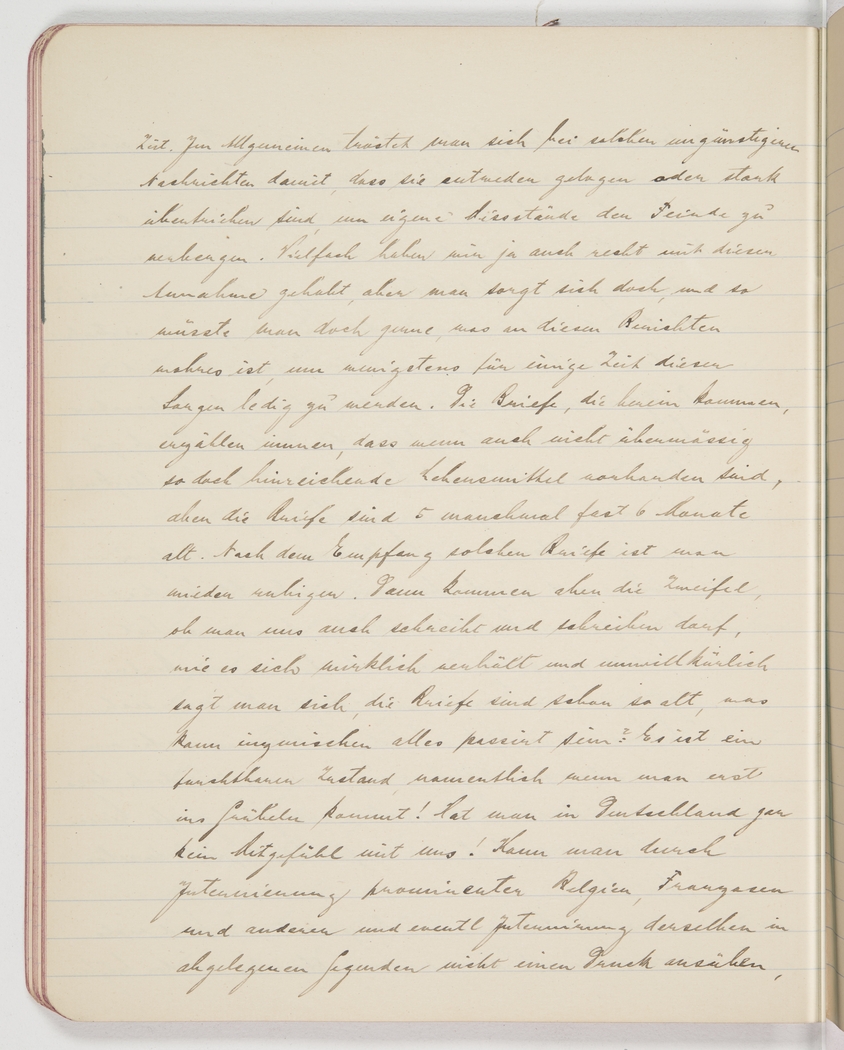 Zeit. Im Allgemeinen tröstet man sich bei solchen ungünstigeren
Nachrichten damit, dass sie entweder gelogen oder stark
übertrieben sind, um eigene Missstände dem Feinde zu
verbergen. Vielfach haben wir ja auch recht mit dieser
Annahme gehabt, aber man sorgt sich doch, und so
wüsste man doch gerne, was an diesen Berichten
wahres ist, um wenigstens für einige Zeit dieser
Sorgen ledig zu werden. Die Briefe, die herein kommen,
erzählen immer, dass wenn auch nicht übermässig
so doch hinreichende Lebensmittel vorhanden sind,
aber die Briefe sind 5 manchmal fast 6 Monate
alt. Nach dem Empfang solcher Briefe ist man
wieder ruhiger. Dann kommen aber die Zweifel,
ob man uns auch schreibt und schreiben darf,
wie es sich wirklich verhält und unwillkürlich
sagt man sich, die Briefe sind schon so alt, was
kann inzwischen alles passirt sein? Es ist ein
furchtbarer Zustand, namentlich wenn man erst
ins Grübeln kommt! Hat man in Deutschland gar
kein Mitgefühl mit uns! Kann man durch
Internierung prominenter Belgier, Franzosen
und anderer und eventl Internirung derselben in
abgelegenen Gegenden nicht einen Druck ausüben,